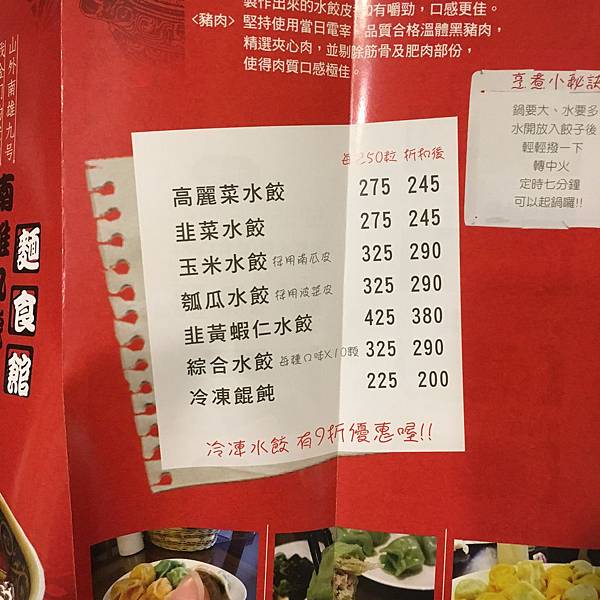 製作出來的水餃皮
有嚼勁，口感更佳。
<豬肉>
堅持使用當日電宰、品質合格溫體黑豬肉，
精選夾心肉，並剔除筋骨及肥肉部份，
使得肉質口感極佳。
烹煮小秘訣
鍋要大、水要多
水開放入餃子後
輕輕撥一下
轉中火
定時七分鐘
可以起鍋囉!!
每 50粒 折扣後
高麗菜水餃 275 245
韭菜水餃 275 245
玉米水餃 採用南瓜皮 325 290
瓠瓜水餃 採用波菜皮 325 290
韭黃蝦仁水餃 425 380
綜合水餃 每種口味X10顆 325 290
冷凍餛飩 225 200
冷凍水餃 有9折優惠喔!!
山外南雄九号
麵食館